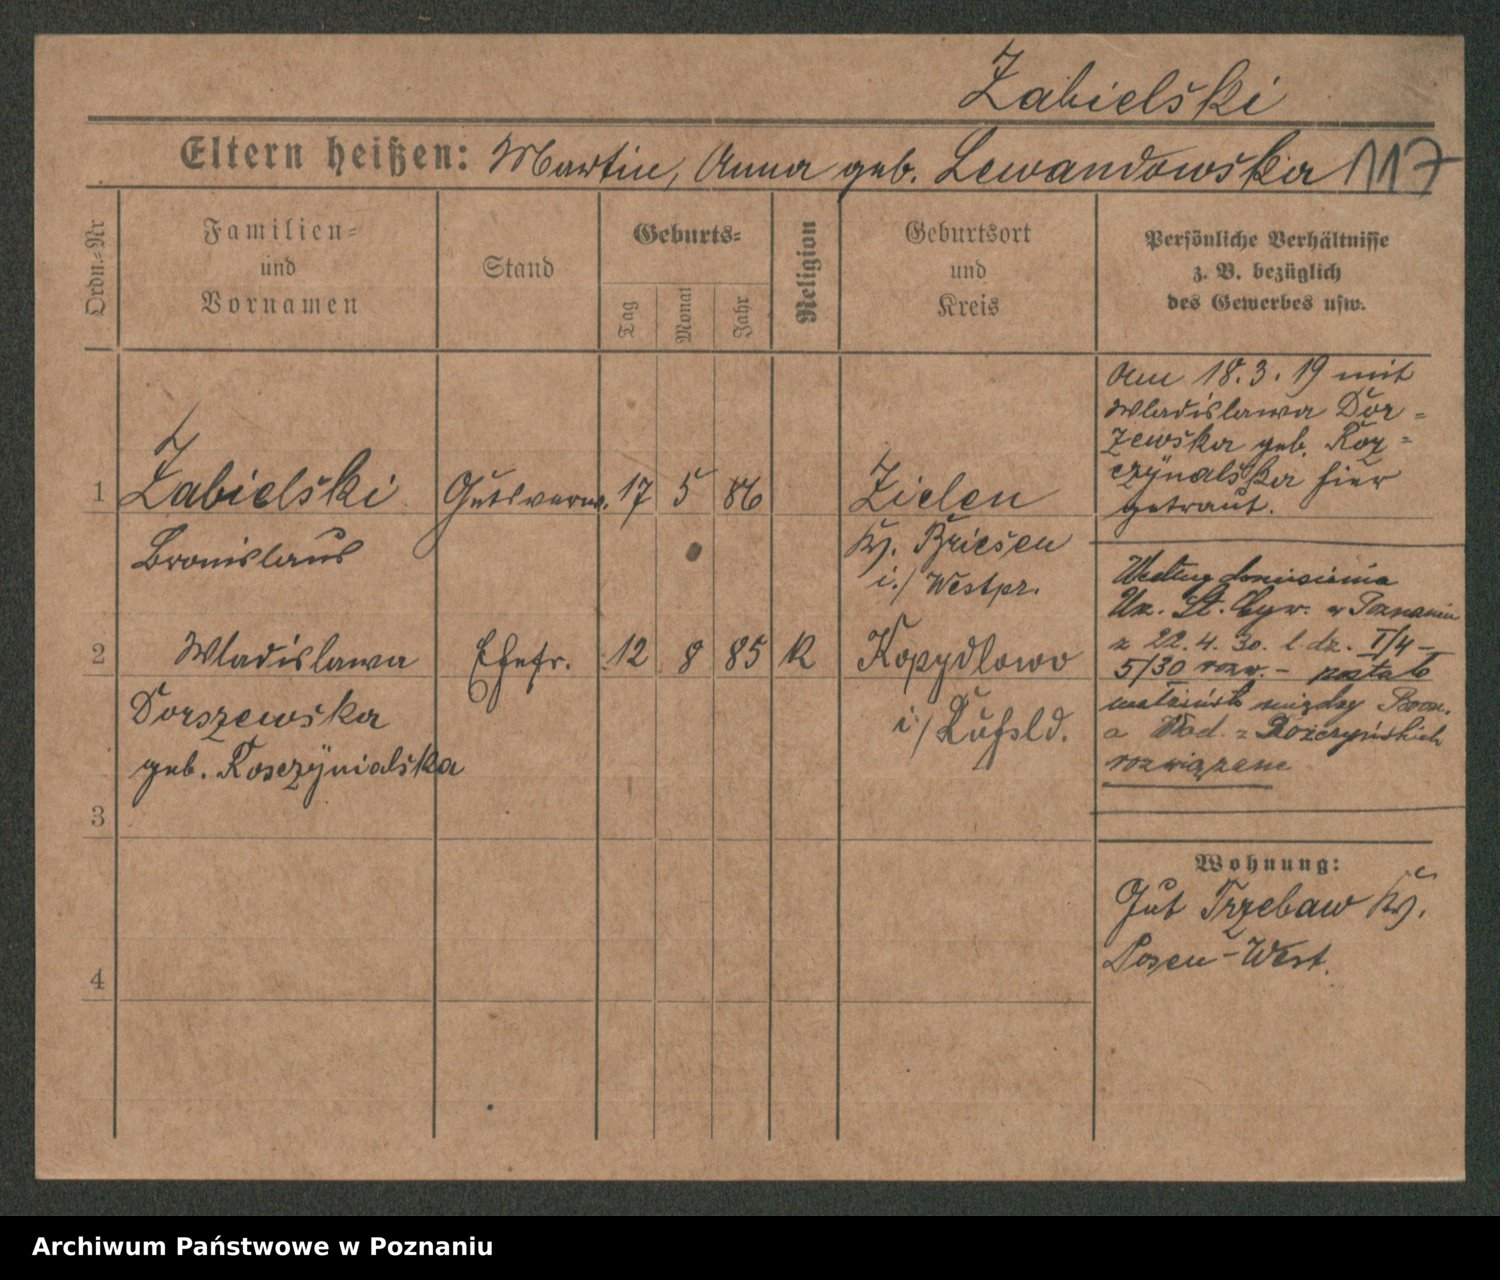 Zabielski
Eltern heißen: Martin, Anna geb. Lewandowska 117
Ordn.=Nr
Familien=
und
Vornamen
Stand
Geburts=
Tag
Monat
Jahr
Religion
Geburtsort
und
Kreis
Persönliche Verhältnisse
z. B. bezüglich
des Gewerbes usw.
Am 18. 3. 19 mit
Wladislawa Dor=
zewska geb. Koz=
czynalska hier
getraut.
1 Zabielski Gutsverw. 17 5 86 Zielen
Bronislaus Kr. Briesen
i./ Westpr.
Według doniesienia
Urz. St. Cyw. w Poznaniu
z 22. 4. 30. l. dz. I/4 –
5/30 rozw. – zostało
małżeństw między Bron.
a Wład. z
rozwiązane
2 Wladislawa Ehefr. 12 8 85 K Kopydlowo
Dorszewska i/
geb. Kosczynialska
3
4
Wohnung:
Gut Trzebaw Kr.
Posen-West.
Archiwum Państwowe w Poznaniu